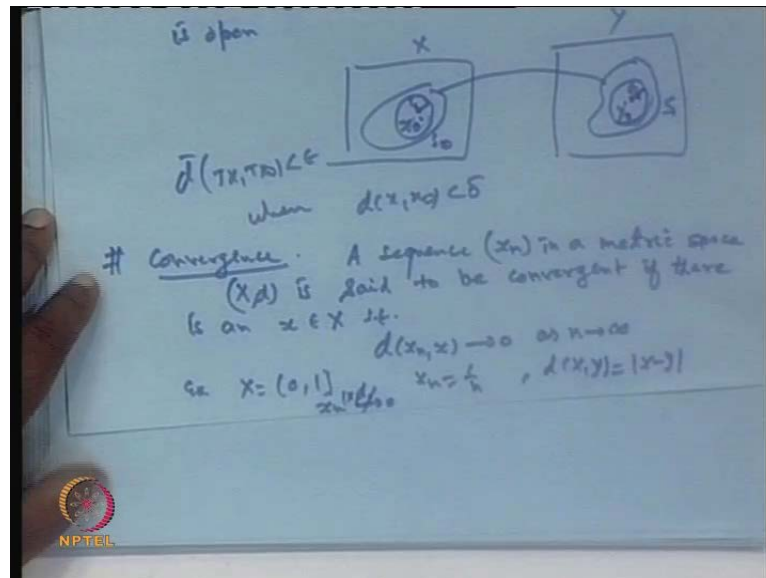 is open
X Y
x₀
S₀ S
d̄(Tx, Tx₀) < ε
when d(x, x₀) < δ
# Convergence. A sequence (xn) in a metric space
(X,d) is said to be convergent if there
is an x ∈ X s.t.
d(xn, x) → 0 as n → ∞
Ex X = (0, 1] xn = 1/n , d(x,y) = |x-y|
NPTEL